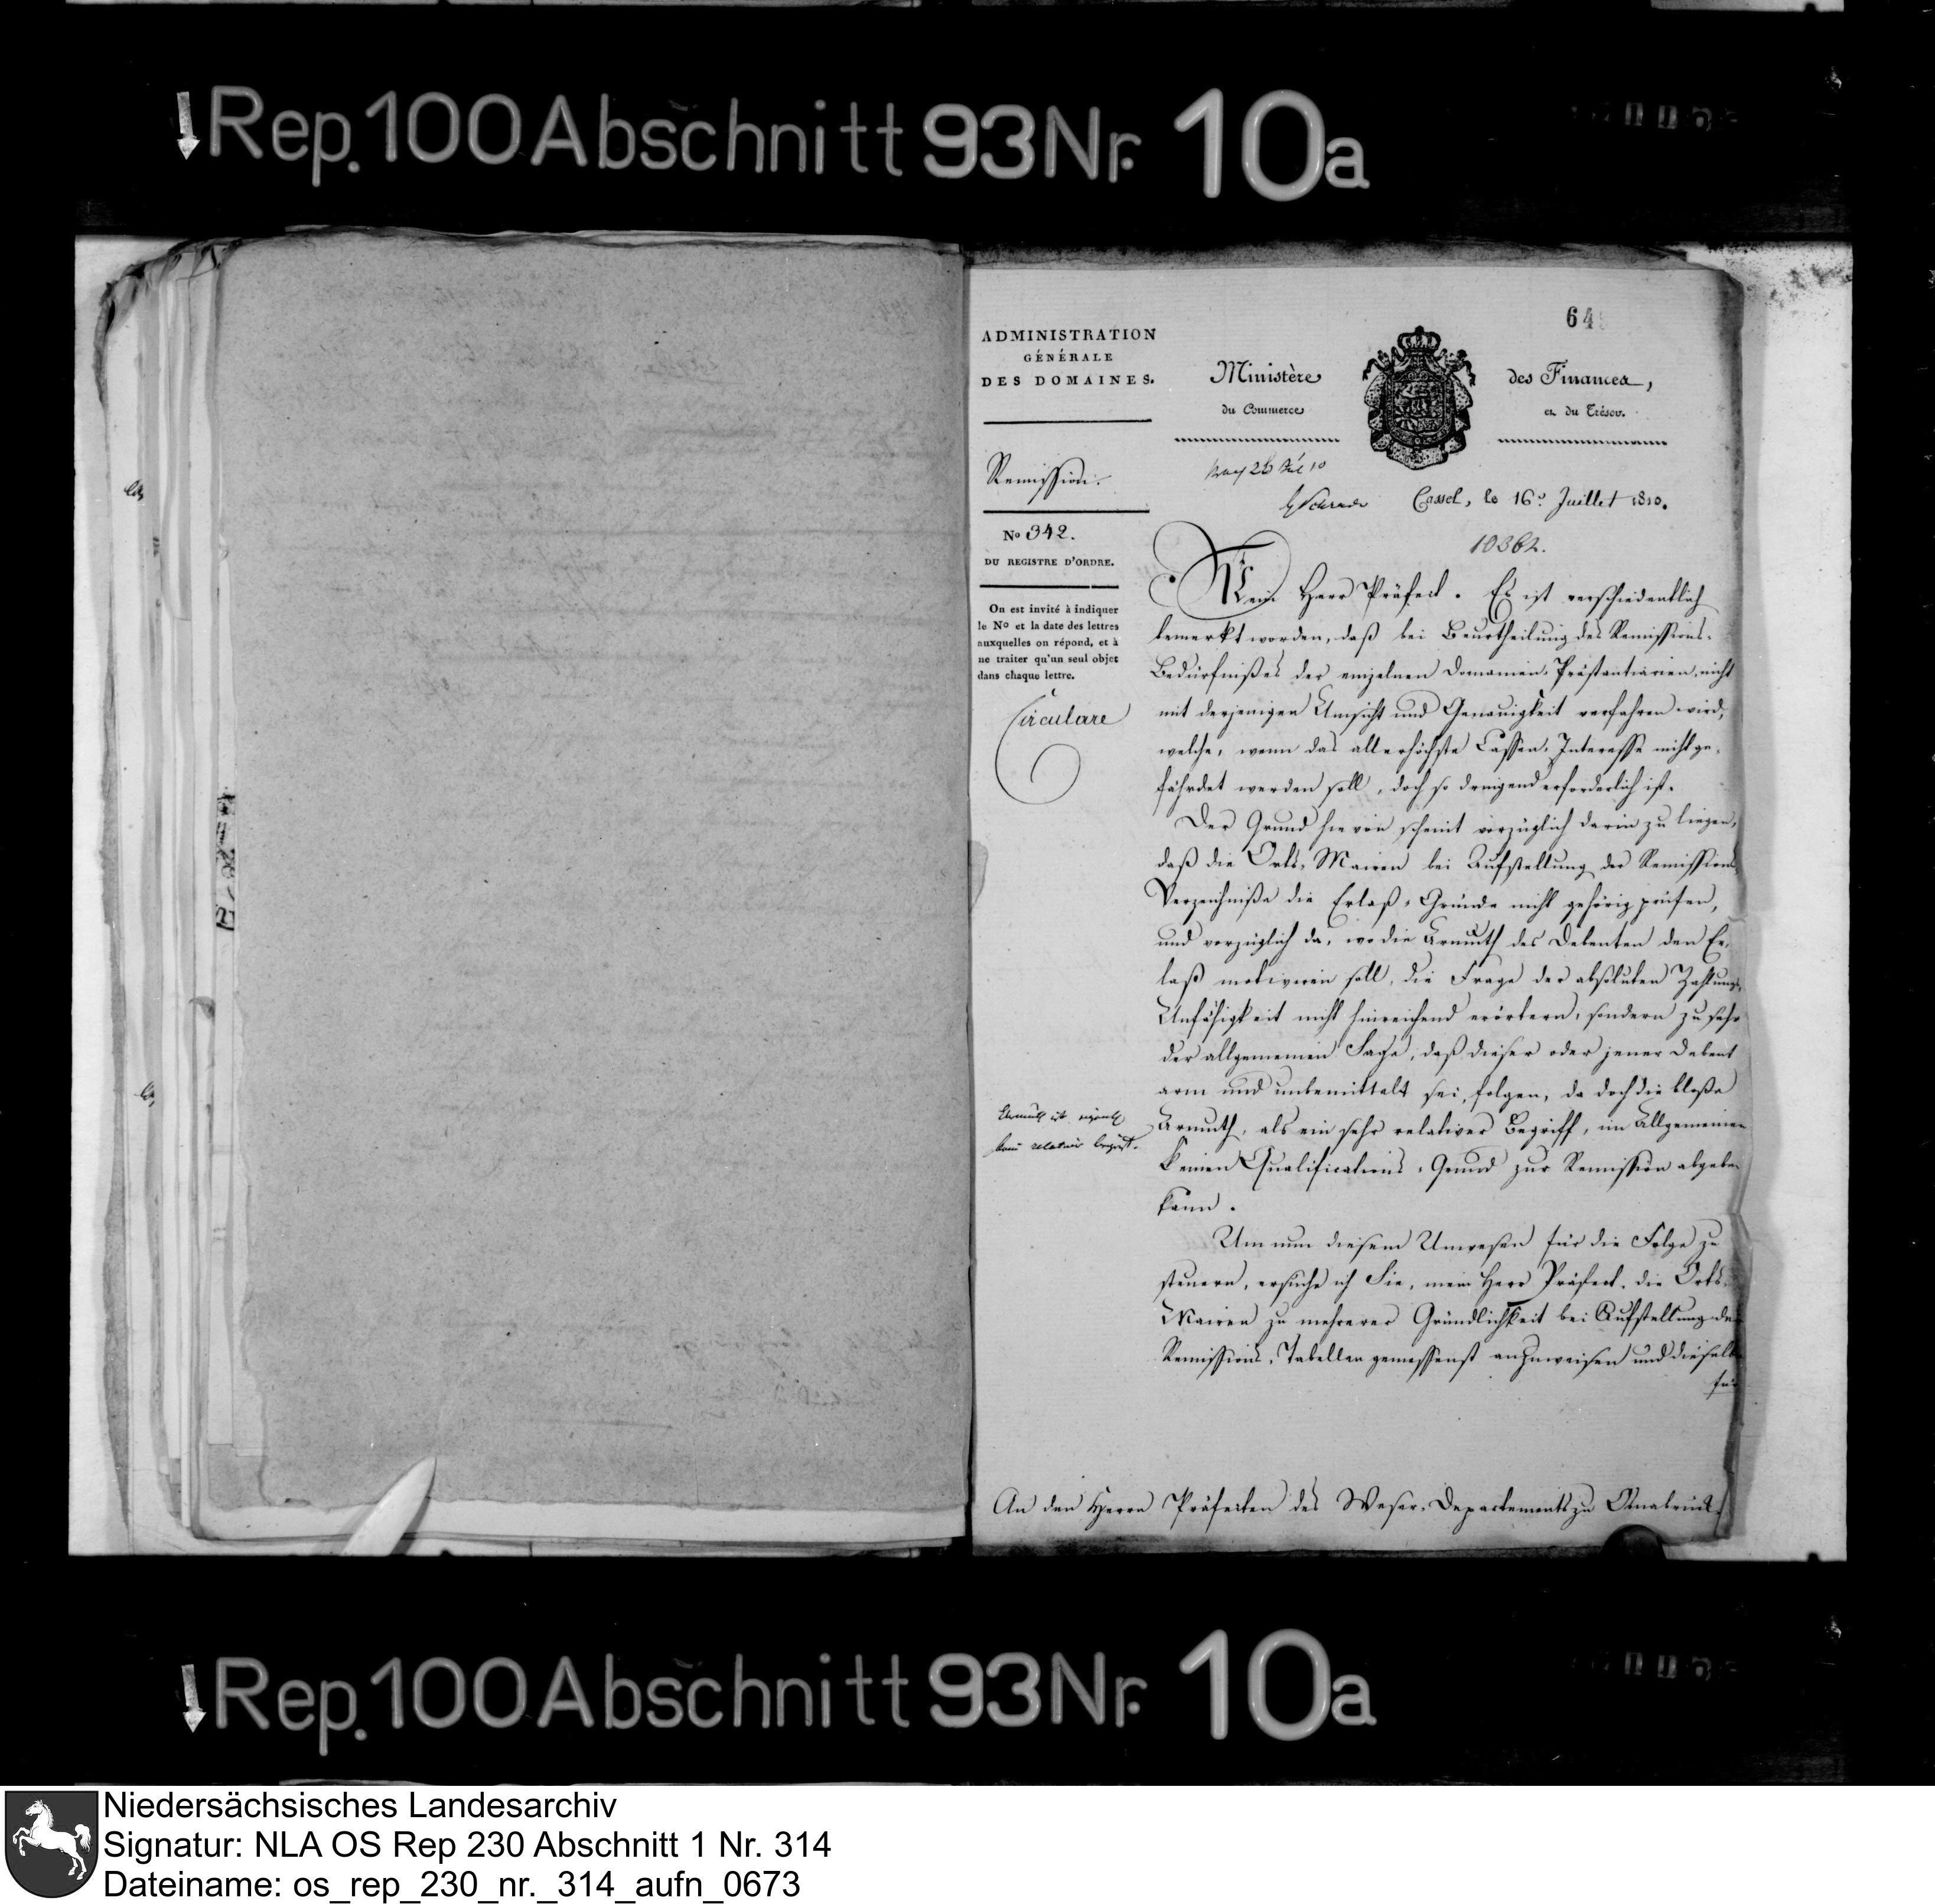 Rep. 100 Abschnitt 93 Nr. 10a
64
ADMINISTRATION
GÉNÉRALE
DES DOMAINES.
Ministère des Finances,
du Commerce et du Trésor.
Remission.
Cassel, le 16e Juillet 1810.
No 342.
DU REGISTRE D'ORDRE.
10362.
On est invité à indiquer
le No et la date des lettres
auxquelles on répond, et à
ne traiter qu'un seul objet
dans chaque lettre.
Circulare
Mein Herr Präfect. Es ist verschiedentlich
bemerkt worden, daß bei Beurtheilung des Remissions-
Bedürfnißes der einzelnen Domainen-Prästantiarien, nicht
mit derjenigen Umsicht und Genauigkeit verfahren wird,
welche, wenn das allerhöchste Cassen-Interesse nicht ge-
fährdet werden soll, doch so dringend erforderlich ist.
Der Grund hievon scheint vorzüglich darin zu liegen,
daß die Orts-Mairen bei Aufstellung der Remissions-
Verzeichniße die Erlaß-Gründe nicht gehörig prüfen,
und vorzüglich da, wo die Armuth des Debenten den Er-
laß motiviren soll, die Frage der absoluten Zahlungs-
Unfähigkeit nicht hinreichend erörtern, sondern zu sehr
der allgemeinen Sage, daß dieser oder jener Debent
arm und unbemittelt sei, folgen, da doch die bloße
Armuth, als ein sehr relativer Begriff, im Allgemeinen
keinen Qualifications-Grund zur Remission abgeben
kann.
Armuth ist
kein relativer Begriff.
Um nun diesem Unwesen für die Folge zu
steuern, ersuche ich Sie, mein Herr Präfect, die Orts-
Mairen zu mehrerer Gründlichkeit bei Aufstellung der
Remissions-Tabellen gemessenst anzuweisen und dieselben
für
An den Herrn Präfecten des Weser-Departements zu Osnabrück.
Rep. 100 Abschnitt 93 Nr. 10a
Niedersächsisches Landesarchiv
Signatur: NLA OS Rep 230 Abschnitt 1 Nr. 314
Dateiname: os_rep_230_nr._314_aufn_0673